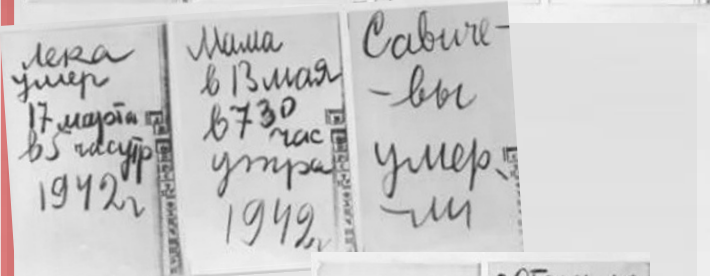 Лека
умер
17 марта
в 5 час утр
1942 г
Мама
в 13 мая
в 7 30
час
утра
1942
Савиче-
-вы
умер.
-ли